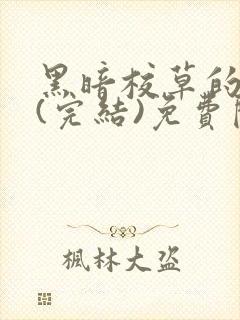 黑暗校草的
(完結)免費
楓林大盜